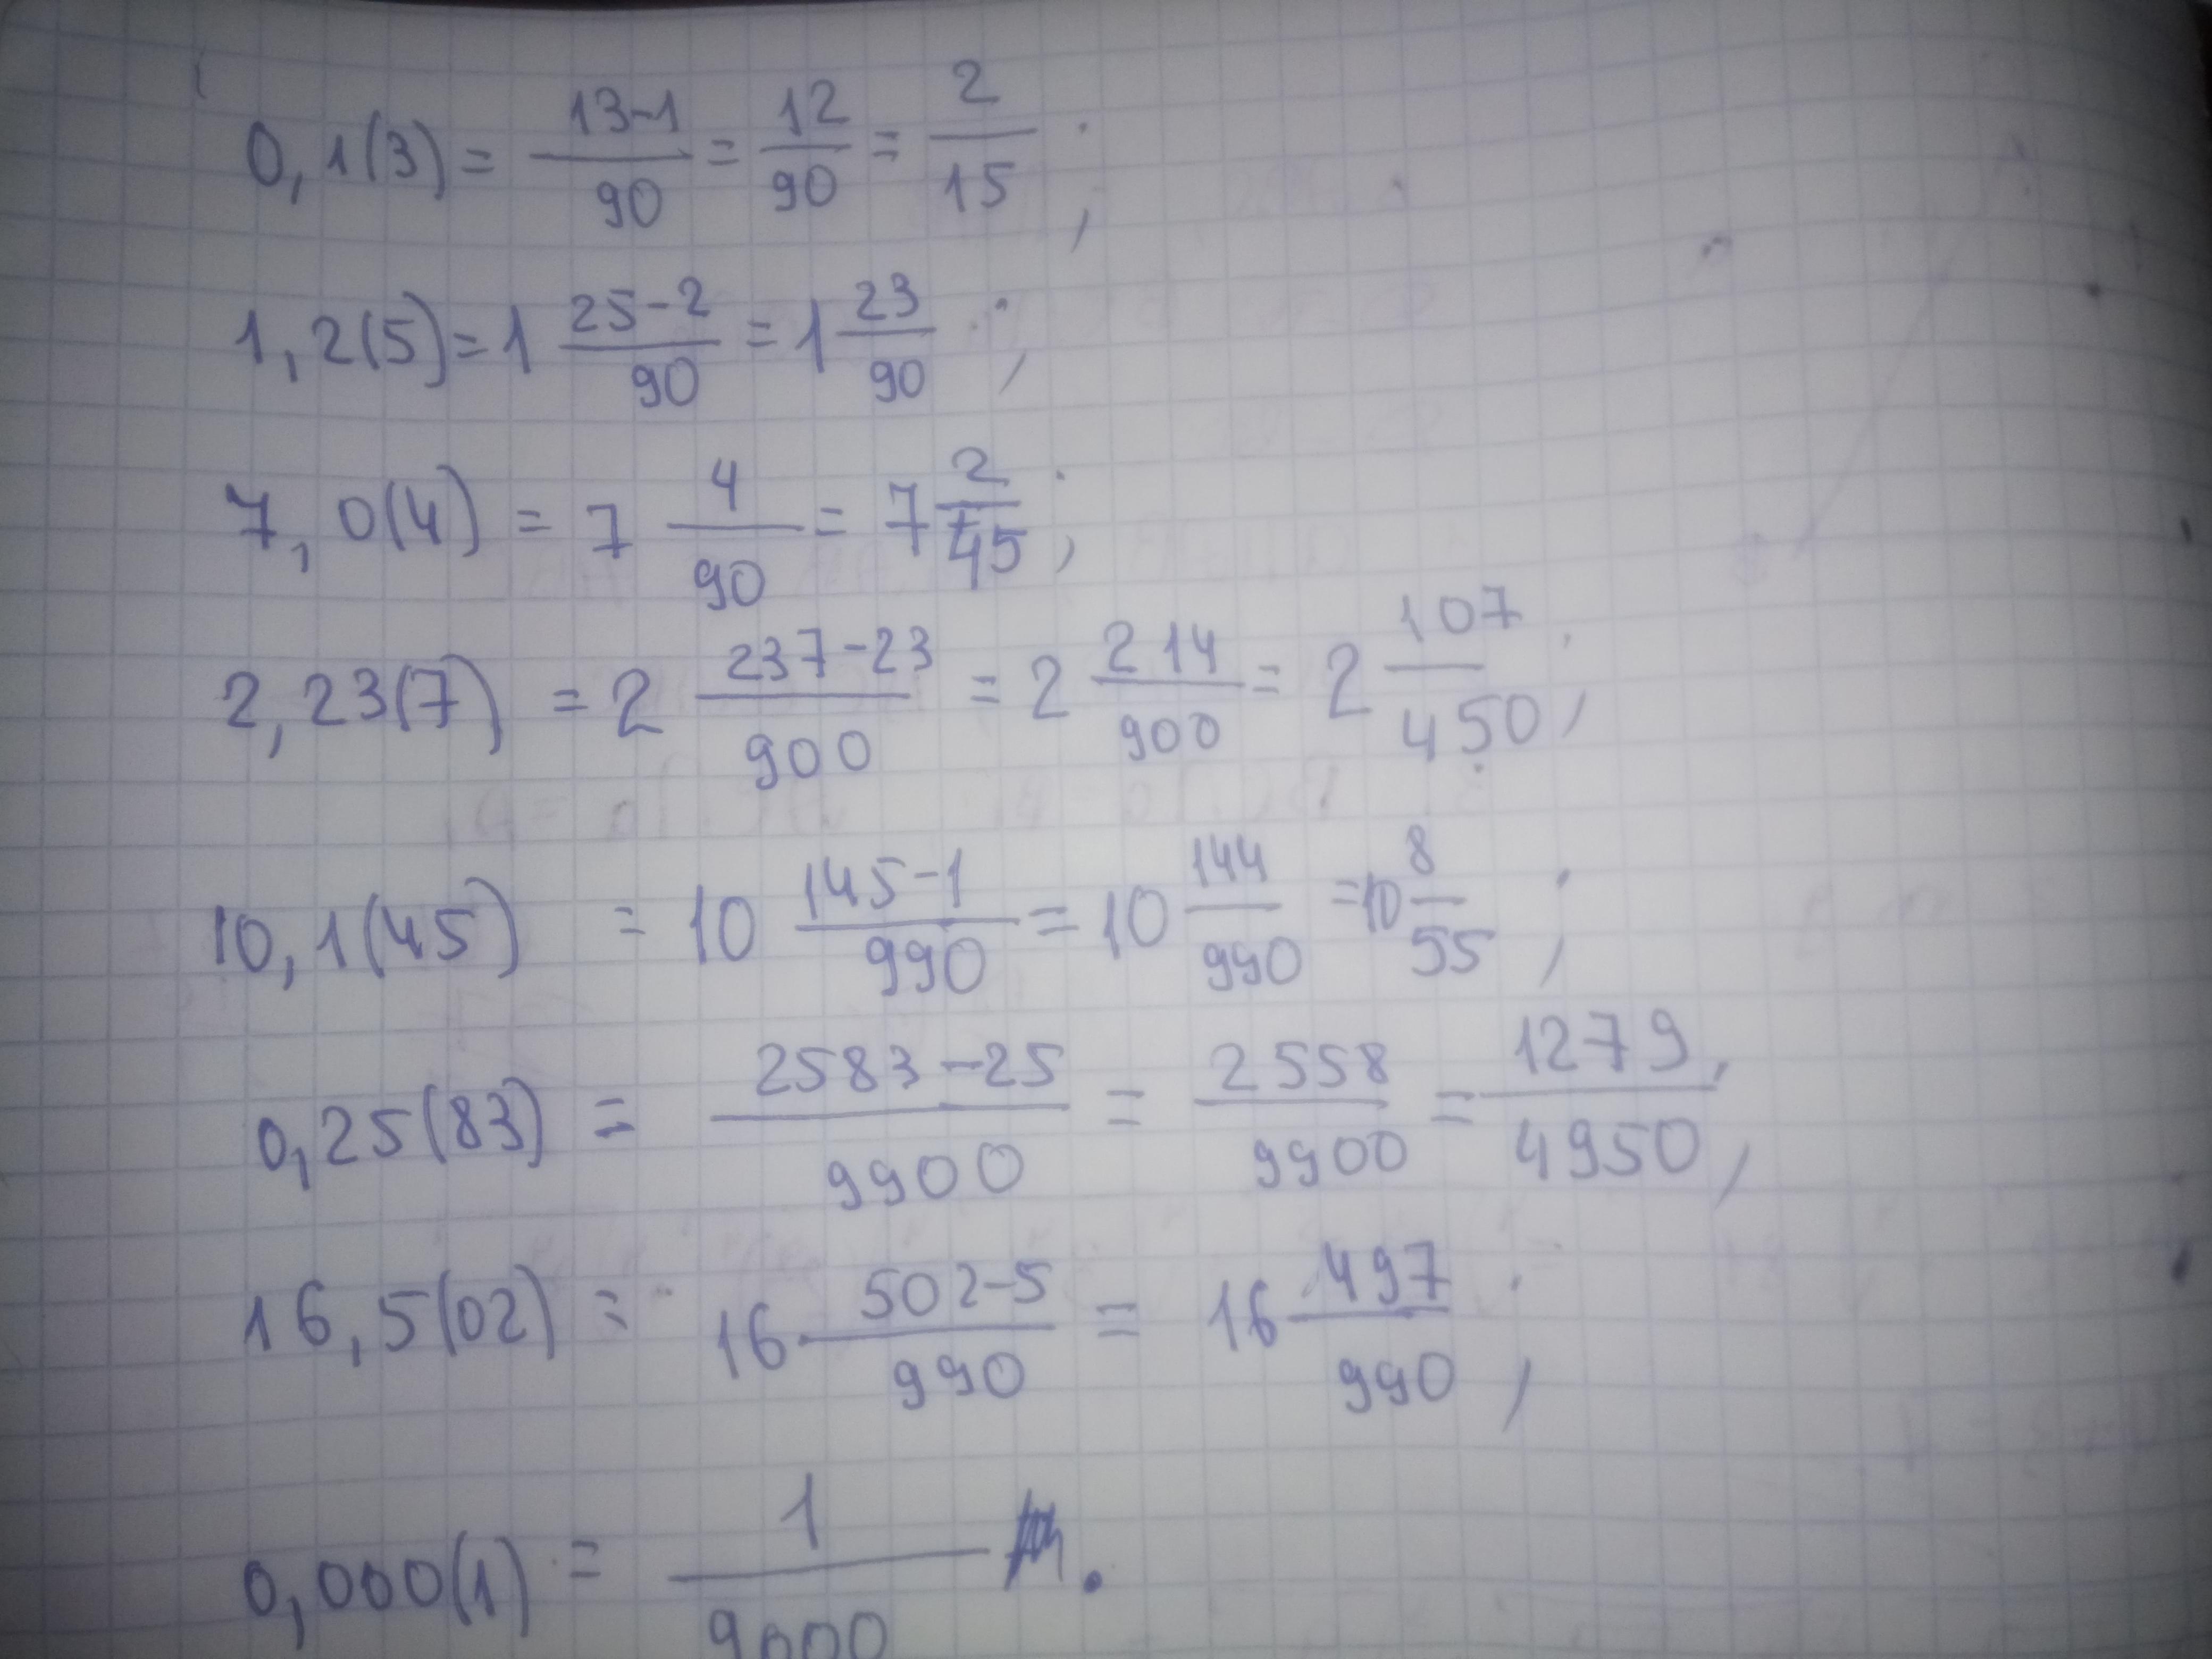 0,1(3) = (13-1)/90 = 12/90 = 2/15 ;
1,2(5) = 1 (25-2)/90 = 1 23/90 ;
7,0(4) = 7 4/90 = 7 2/45 ;
2,23(7) = 2 (237-23)/900 = 2 214/900 = 2 107/450 ;
10,1(45) = 10 (145-1)/990 = 10 144/990 = 10 8/55 ;
0,25(83) = (2583-25)/9900 = 2558/9900 = 1279/4950 ;
16,5(02) = 16 (502-5)/990 = 16 497/990 ;
0,000(1) = 1/9000 .